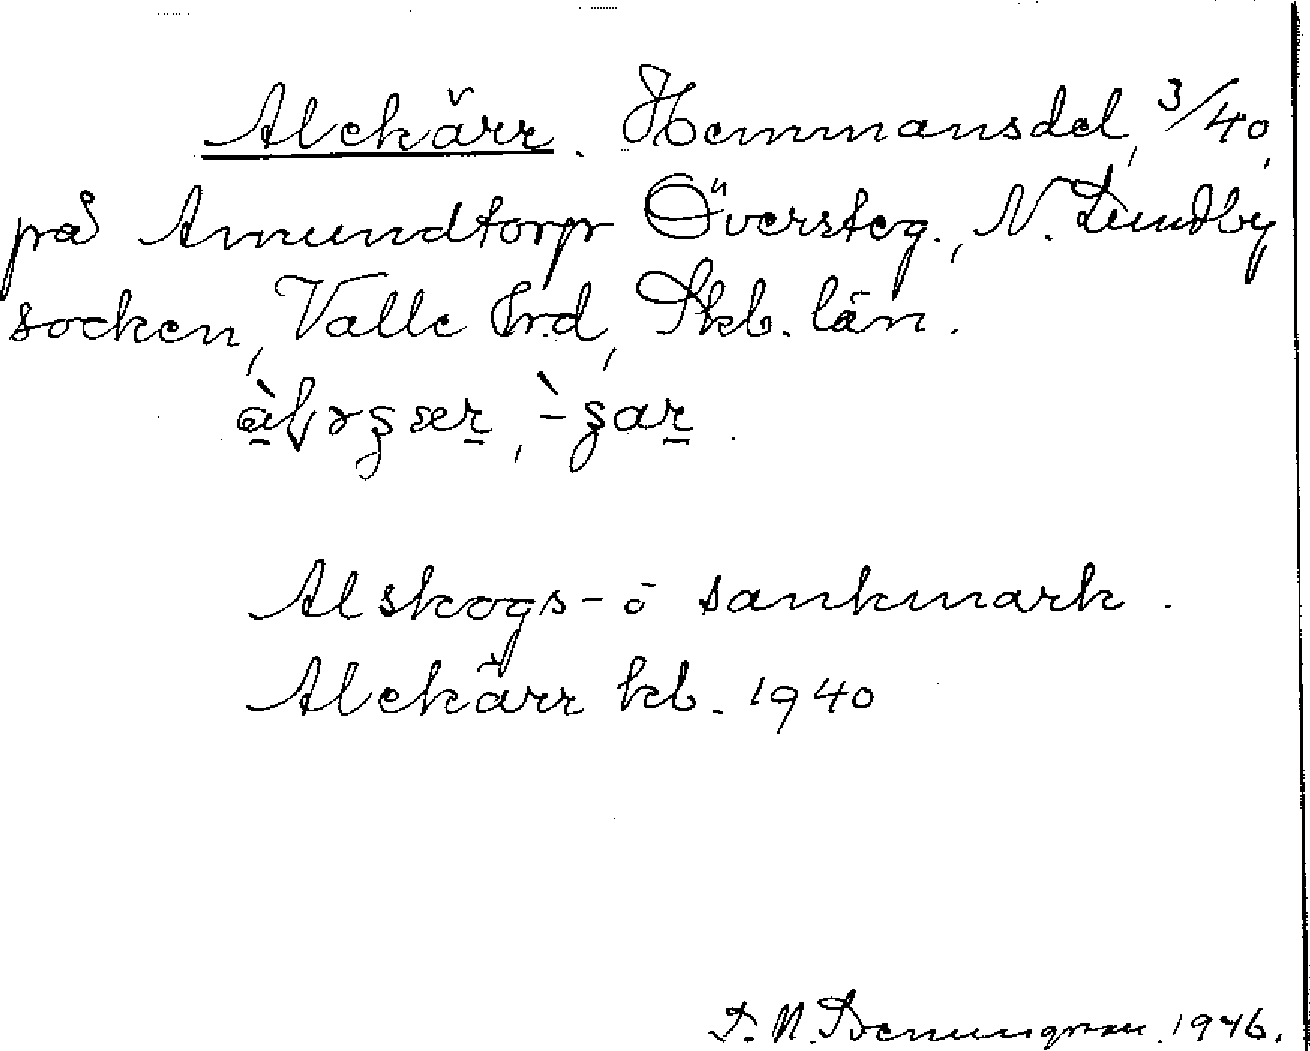 Alekärr. Hemmansdel, 3/40,
på Amundtorp Översteg., N. Lundby
socken, Valle hrd, Skb. län.
Alskogs- o sankmark.
Alekärr kb. 1940
1946.